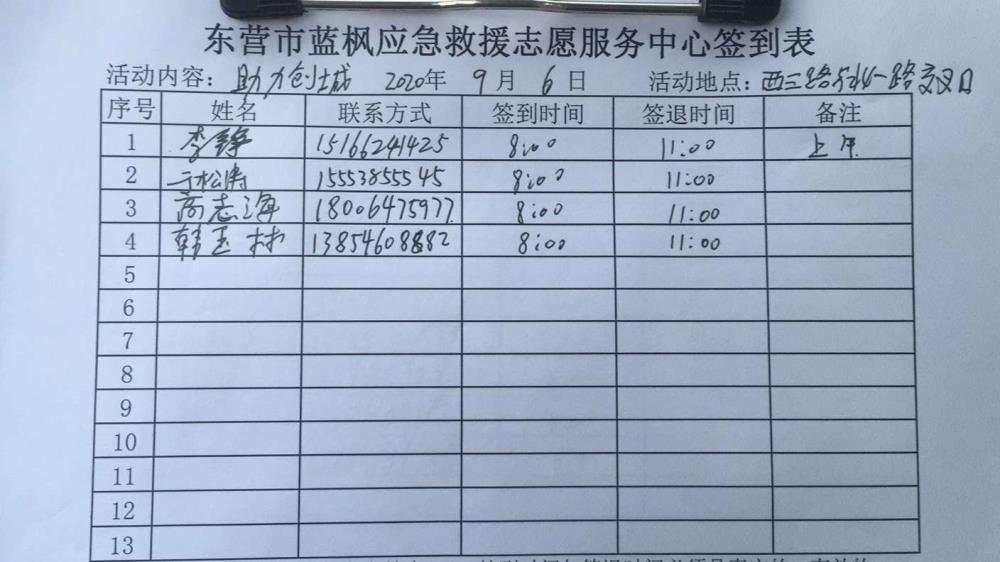 东营市蓝枫应急救援志愿服务中心签到表
活动内容：助力创城 2020年 9月 6日 活动地点：西三路与北一路交叉口
序号 姓名 联系方式 签到时间 签退时间 备注
1 李铮 15166241425 8:00 11:00 上午
2 于松涛 15553855545 8:00 11:00
3 高志海 18006475977 8:00 11:00
4 韩玉林 13854608882 8:00 11:00
5
6
7
8
9
10
11
12
13